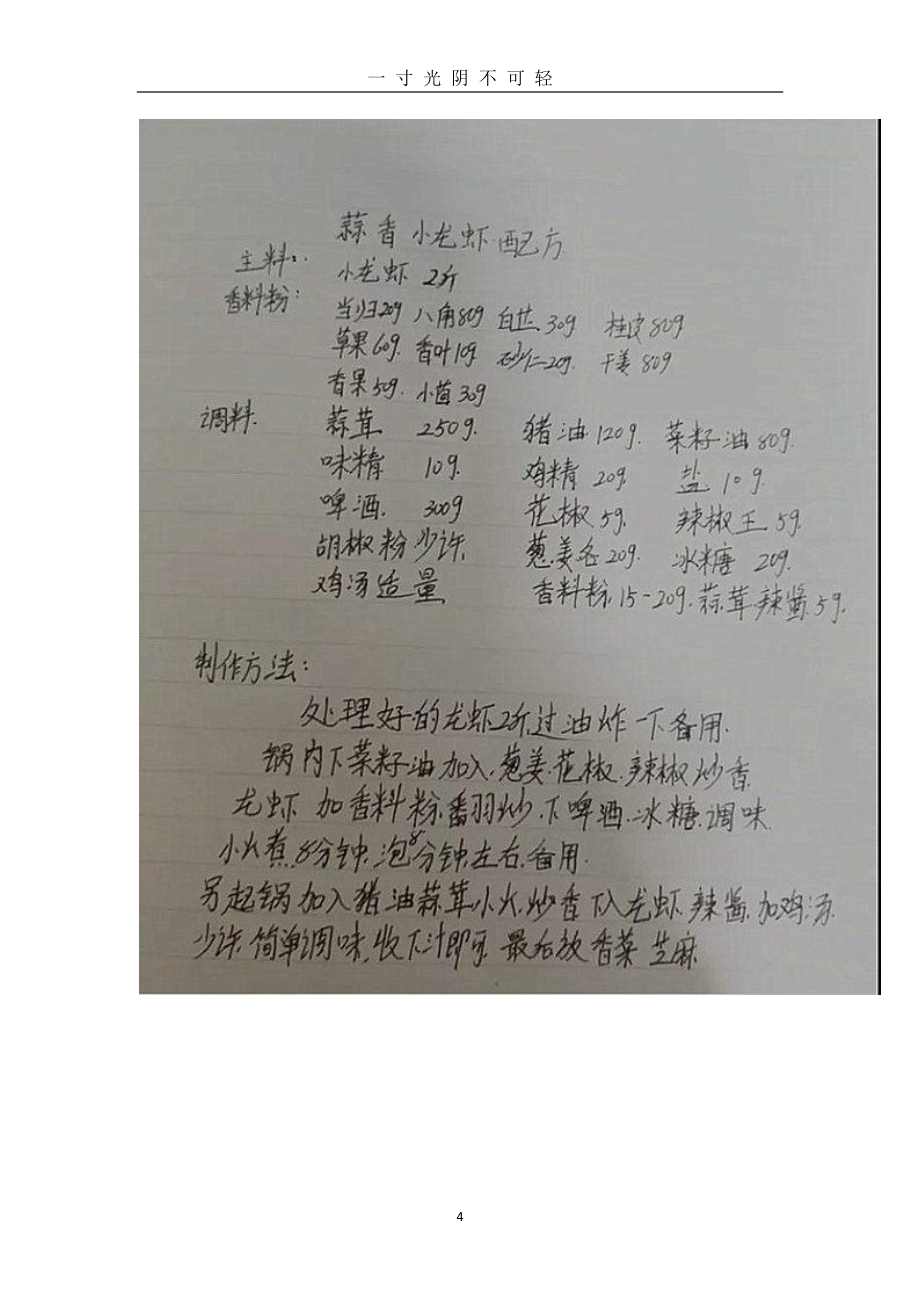 一寸光阴不可轻
蒜香小龙虾配方
主料: 小龙虾 2斤
香料粉:
当归20g 八角80g 白芷30g 桂皮80g
草果60g. 香叶10g. 砂仁20g. 干姜80g
香果50g. 小茴30g
调料. 蒜茸 250g. 猪油120g. 菜籽油80g.
味精 10g. 鸡精 20g. 盐 10g.
啤酒. 300g 花椒5g. 辣椒王5g.
胡椒粉少许. 葱.姜各20g. 冰糖 20g.
鸡汤适量 香料粉.15-20g. 蒜茸.辣酱.5g.
制作方法:
处理好的龙虾2斤,过油炸一下备用.
锅内下菜籽油加入.葱姜.花椒.辣椒炒香
龙虾 加香料粉.翻炒.下啤酒.冰糖.调味
小火煮.8分钟,泡8分钟,左右,备用.
另起锅加入猪油蒜茸小火.炒香下入龙虾.辣酱.加鸡汤.
少许.简单调味,收下汁即可.最后放香菜 芝麻.
4